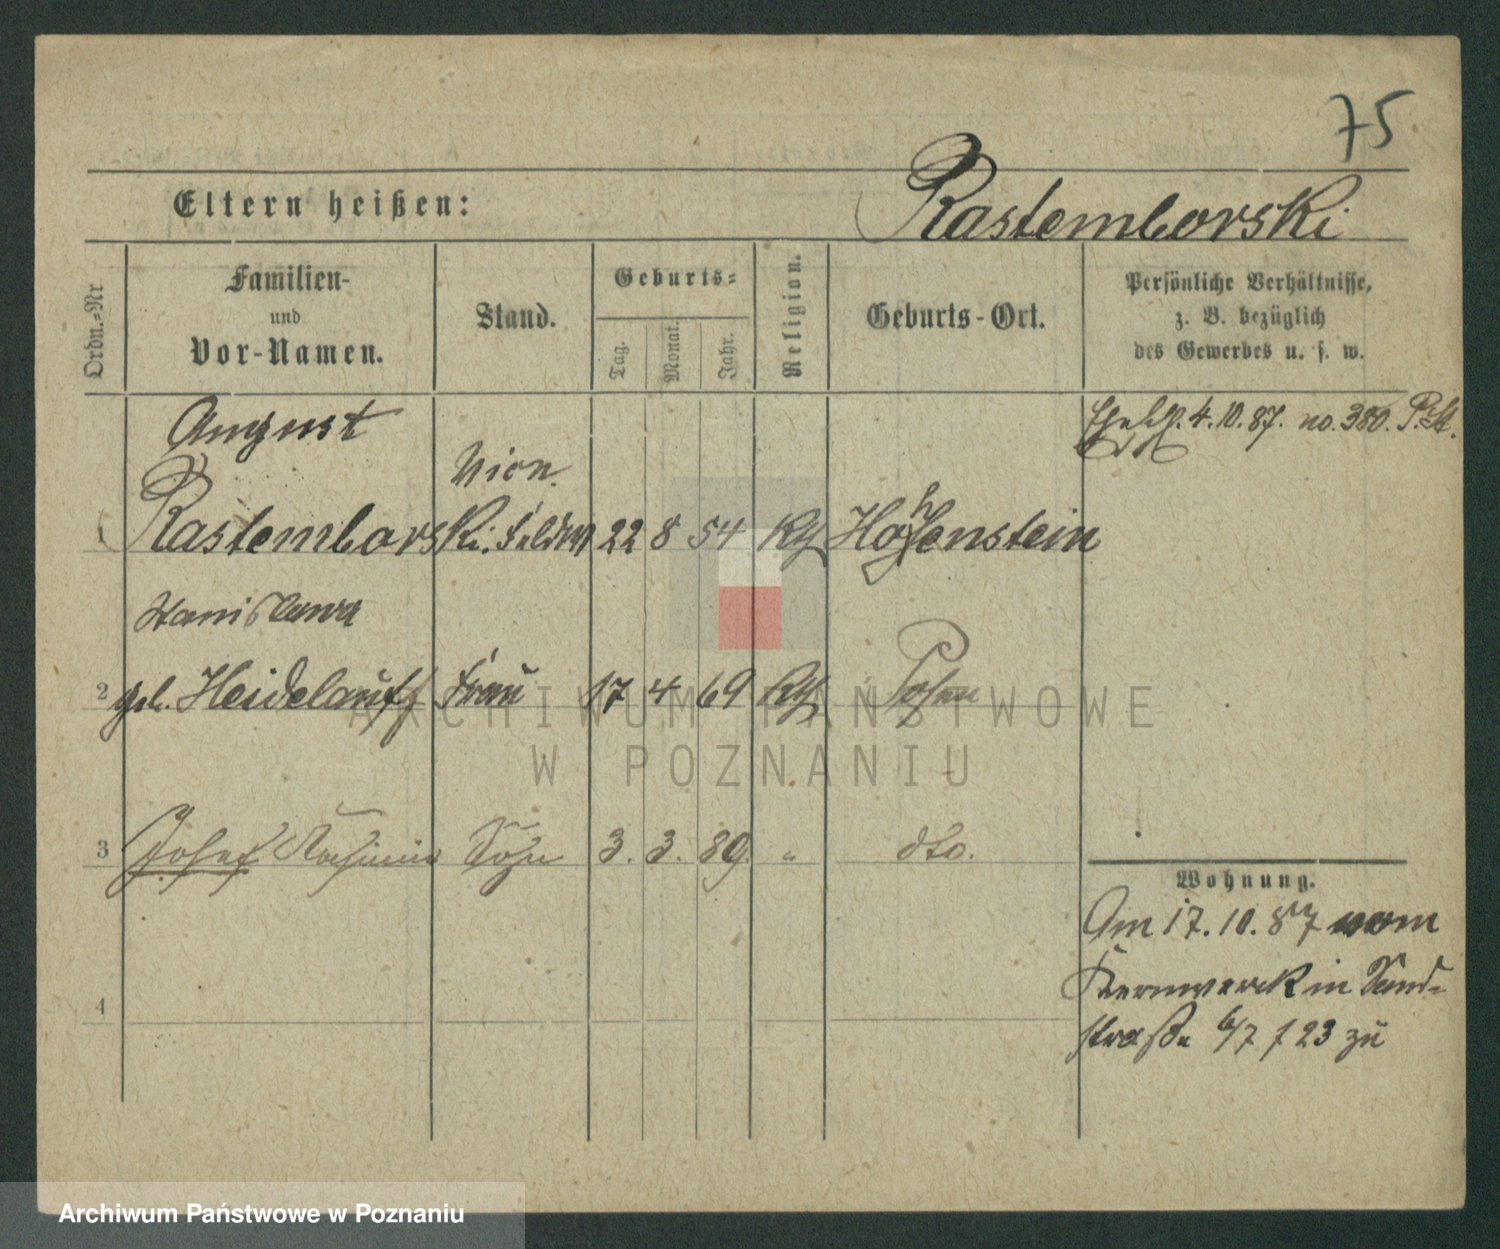 75
Eltern heißen:
Rastemborski
Ordn.-Nr
Familien-
und
Vor-Namen.
Stand.
Geburts-
Tag.
Monat.
Jahr.
Religion.
Geburts-Ort.
Persönliche Verhältnisse,
z. B. bezüglich
des Gewerbes u. s. w.
4.10.87. no. 380.
August
1 Rastemborski. 22 8 54 Kth Hohenstein
Stanislawa
2 geb. Heidelauff Frau 17 4 69 Kth Posen
3 Josef Kasimir Sohn 3. 3. 89. " dto.
4
Wohnung.
Am 17.10.87 vom
Kernwerck in Sand-
straße 6/7 f 23 zu
ARCHIWUM PAŃSTWOWE
W POZNANIU
Archiwum Państwowe w Poznaniu